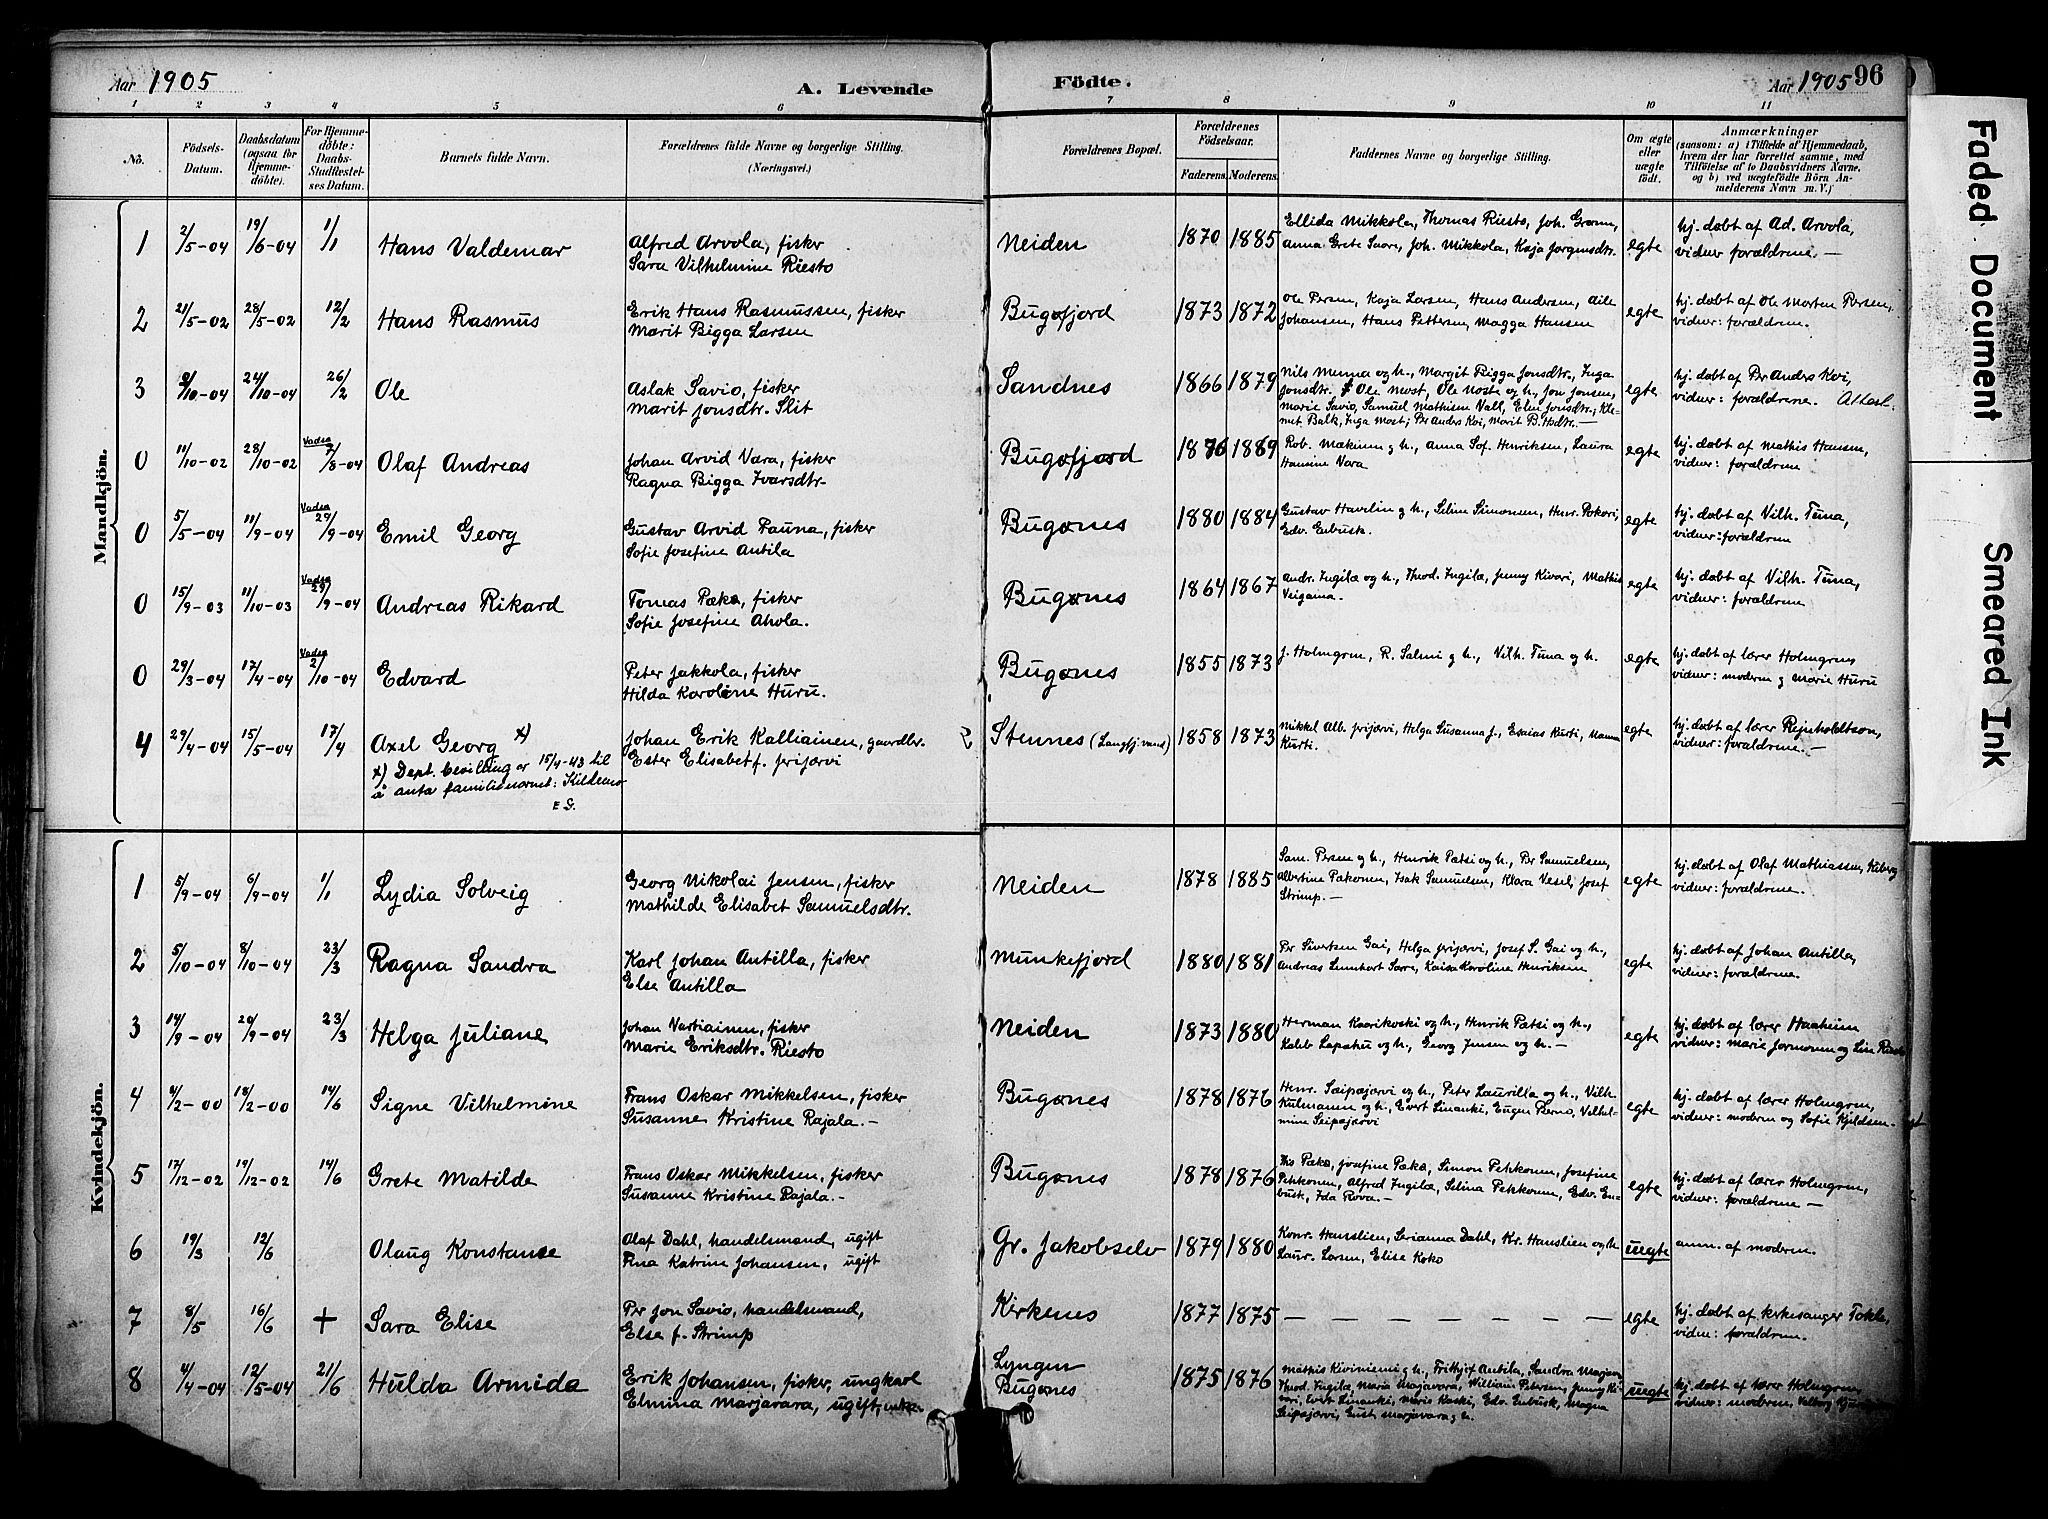 Aar 1905 A. Levende Födte. Aar 1905 96
1 2 3 4 5 6 7 8 9 10 11
No. Födsels-Datum. Daabsdatum (ogsaa for Hjemmedöbte). For Hjemmedöbte: Daabs-Stadfæstelses Datum. Barnets fulde Navn. Forældrenes fulde Navne og borgerlige Stilling. (Næringsvei.) Forældrenes Bopæl. Forældrenes Födselsaar. Faderens. Moderens. Faddernes Navne og borgerlige Stilling. Om ægte eller uægte födt. Anmærkninger (saasom: a) i Tilfælde af Hjemmedaab, hvem der har forrettet samme, med Tilföielse af to Daabsvidners Navne, og b) ved uægtefödte Börn Anmelderens Navn m. V.)
Mandkjön.
1 2/5-04 19/6-04 1/1 Hans Valdemar Alfred Arvola, fisker Neiden 1870 1885 Ellida Mikkola, Thomas Riesto, Joh. Grönn, egte hj. döbt af Ad. Arvola,
Sara Vilhelmine Riesto Anna Grete Saore, Joh. Mikkola, Kaja Jörgensdtr. vidner forældrene. —
2 21/5-02 28/5-02 12/2 Hans Rasmus Erik Hans Rasmussen, fisker Bugöfjord 1873 1872 Ole Persen, Kaja Larsen, Hans Andersen, Aile egte hj. döbt af Ole Morten Persen,
Marit Bigga Larsen Johansen, Hans Pettersen, Magga Hansen vidner: forældrene.
3 9/10-04 24/10-04 26/2 Ole Aslak Savio, fisker Sandnes 1866 1879 Nils Menna og h., Margit Bigga Jonsdtr., Inga egte hj. döbt af Per Anders Koi,
Marit Jonsdtr. Slit Jonsdtr. Ole Most, Ole Noste og h., Jon Jonsen, vidner: forældrene. Attest.
Marie Savio, Samuel Mathisen Vall, Elen Jonsdtr., Kle-
met Balk, Inga Most; Per Anders Koi, Marit B. Hodtr. —
0 11/10-02 28/10-02 Vadsö 7/8-04 Olaf Andreas Johan Arvid Vara, fisker Bugöfjord 1876 1869 Rob. Mækinen g h., Anna Sof. Henriksen, Laura egte hj. döbt af Mathis Hansen,
Ragna Bigga Ivarsdtr. Hansine Vara vidner: forældrene
0 5/5-04 11/9-04 Vadsö 29/9-04 Emil Georg Gustav Arvid Fauna, fisker Bugönes 1880 1884 Gustav Havelin g h., Selma Simonsen, Henr. Pokori, egte hj. döbt af Vilh. Tuna,
Sofie Josefine Antila Edv. Enbusk. vidner: forældrene
0 15/9-03 11/10-03 Vadsö 29/9-04 Andreas Rikard Tomas Pækö, fisker Bugönes 1864 1867 Andr. Ingilæ og h., Theod. Ingilæ, Jenny Kivari, Mathis egte hj. döbt af Vilh. Tuna,
Sofie Josefine Ahola. Veigama. vidner: forældrene
0 29/3-04 17/4-04 Vadsö 2/10-04 Edvard Peter Jakkola, fisker Bugönes 1855 1873 J. Holmgren, R. Salmi g h., Vilh. Tuna og h. egte hj. döbt af lærer Holmgren
Hilda Karoline Huru. vidner: moderen g Marie Huru
4 29/4-04 15/5-04 17/4 Axel Georg x) Johan Erik Kalliainen, gaardbr. Stennes (Langfj.vand) 1858 1873 Mikkel Alb. Jerijærvi, Helga Susanna J., Esaias Kurti, Manna egte hj. döbt af lærer Reinholdtsen,
x) Dept. bevilling av 15/4-43 til Ester Elisabet f. Jerijærvi Kurti. vidner: forældrene. —
å anta familienavnet: Kildemo
E G.
Kvindekjön.
1 5/9-04 6/9-04 1/1 Lydia Solveig Georg Nikolai Jensen, fisker Neiden 1878 1885 Sam. Persen og h., Henrik Pætsi og h., Per Samuelsen, egte hj. döbt af Olaf Mathiassen, Kiberg
Mathilde Elisabet Samuelsdtr. Albertine Pakonen, Isak Samuelsen, Klara Vesel, Josef vidner: forældrene.
Strimp. —
2 5/10-04 8/10-04 23/3 Ragna Sandra Karl Johan Antilla, fisker Munkefjord 1880 1881 Per Sivertsen Gai, Helga Jerijærvi, Josef S. Gai og h., egte hj. döbt af Johan Antilla,
Else Antilla Andreas Lennhart Sarre, Kaisa Karoline Henriksen vidner: forældrene.
3 14/9-04 20/9-04 23/3 Helga Juliane Johan Vartiainen, fisker Neiden 1873 1880 Herman Kaarikoski og h., Henrik Pætsi og h., egte hj. döbt af lærer Haaheim
Marie Eriksdtr. Riesto Kaleb Lapahu og h., Georg Jensen og h. — vidner: Marie Jarmonen og Lin Riesto
4 4/2-00 18/2-00 14/6 Signe Vilhelmine Frans Oskar Mikkelsen, fisker Bugönes 1878 1876 Henr. Seipæjærvi og h., Peter Laurilla og h., Vilh. egte hj. döbt af lærer Holmgren,
Susanne Kristine Rajala. — Kulmanen og h., Evert Linanki, Eugen Perno, Vilhel- vidner: moderen og Sofie Kjeldsen. —
mine Seipæjærvi
5 17/12-02 19/12-02 14/6 Grete Matilde Frans Oskar Mikkelsen, fisker Bugönes 1878 1876 Pækö, Josefine Pækö, Simon Pekkonen, Josefine egte hj. döbt af lærer Holmgren,
Susanne Kristine Rajala. — Pekkonen, Alfred Ingilæ, Selina Pekkonen, Edv. En- vidner: forældrene —
busk, Ida Rova. —
6 19/3 12/6 Olaug Konstanse Olaf Dahl, handelsmand, ugift Gr. Jakobselv 1879 1880 Konr. Hanslien, Serianna Dahl, Kr. Hanslien og h. uegte anm. af moderen.
Fina Katrine Johansen, ugift Laur. Larsen, Elise Koko
7 8/5 16/6 + Sara Elise Per Jon Savio, handelsmand, Kirkenes 1877 1875 — — — — — — — egte hj. döbt af kirkesanger Tokle,
Else f. Strimp vidner: forældrene.
8 4/4-04 12/5-04 21/6 Hulda Armida Erik Johansen, fisker, ungkarl Lyngen 1875 1876 Mathis Kiviniemi g h., Frithjof Antila, Sandra Marjavara uegte hj. döbt af lærer Holmgren,
Elmina Marjavara, ugift, Bugönes Theod. Ingilæ, Maria Marjavara, William Petersen, Jenny Ki- vidner: moderen, Valborg
vari, Evert Linanki, Marie Koski, Edv. Enbusk, Magna
Seipæjærvi, Gust. Marjavara g h.
Faded Document
Smeared Ink